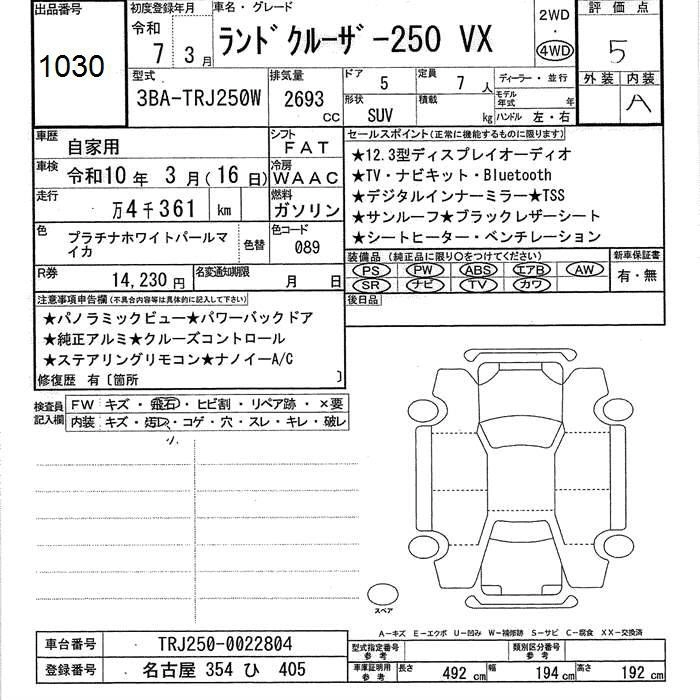 出品番号
1030
初度登録年月
令和
7 3月
車名・グレード
ランドクルーザー250 VX
2WD
・
4WD
評価点
5
外装 内装
A
型式
3BA-TRJ250W
排気量
2693
cc
ドア 5
定員 7 人
形状
SUV
積載
kg
ディーラー・並行
モデル
年式 年
ハンドル 左・右
車歴
自家用
シフト
FAT
車検
令和10年 3月(16日)
冷房
WAAC
走行
万4千361 km
燃料
ガソリン
色
プラチナホワイトパールマ
イカ
色替
色コード
089
R券
14,230円
名変通知期限
月 日
セールスポイント(正常に機能するものに限ります)
★12.3型ディスプレイオーディオ
★TV・ナビキット・Bluetooth
★デジタルインナーミラー★TSS
★サンルーフ★ブラックレザーシート
★シートヒーター・ベンチレーション
装備品(純正品に限り○をつけてください)
PS PW ABS エアB AW
SR ナビ TV カワ
新車保証書
有・無
後日品
注意事項申告欄(不具合内容等は具体的に記入して下さい)
★パノラミックビュー★パワーバックドア
★純正アルミ★クルーズコントロール
★ステアリングリモコン★ナノイーA/C
修復歴 有〔箇所 〕
検査員
記入欄
FW キズ・飛石・ヒビ割・リペア跡・×要
内装 キズ・汚レ・コゲ・穴・スレ・キレ・破レ
小
スペア
A-キズ E-エクボ U-凹み W-補修跡 S-サビ C-腐食 XX-交換済
車台番号 TRJ250-0022804
登録番号 名古屋 354 ひ 405
型式指定番号
参考
類別区分番号
参考
車庫証明用
参考
長さ 492 cm 幅 194 cm 高さ 192 cm